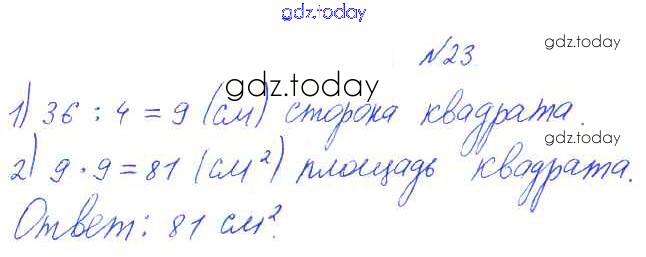 gdz.today
№23.
gdz.today
gdz.today
1) 36 : 4 = 9 (см) сторона квадрата.
gdz.today
2) 9 · 9 = 81 (см²) площадь квадрата.
Ответ: 81 см².